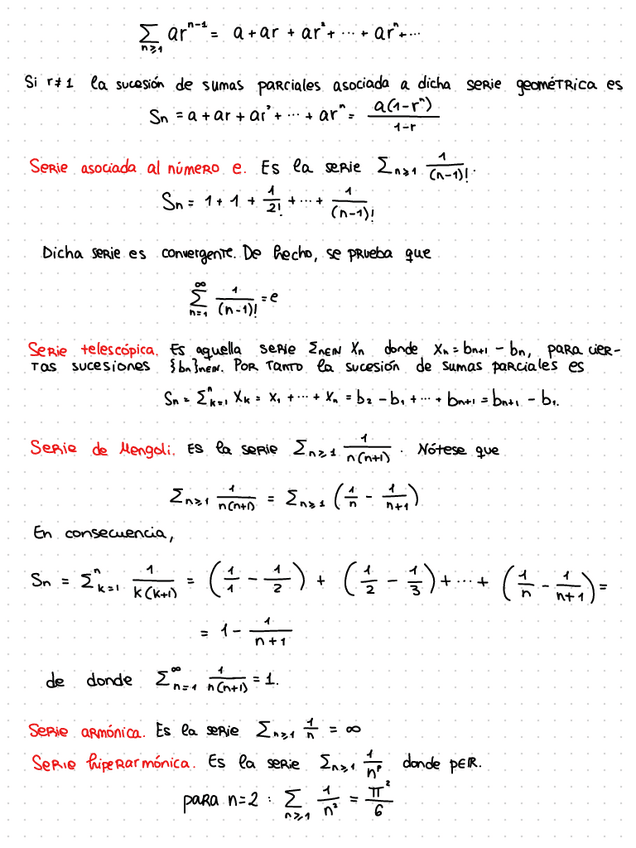 ∑n≥1 ar^(n-1) = a + ar + ar² + ⋯ + ar^n + ⋯
Si r≠1 la sucesión de sumas parciales asociada a dicha serie geométrica es
Sn = a + ar + ar² + ⋯ + ar^n = a(1-r^n)/(1-r)
Serie asociada al número e. Es la serie ∑n≥1 1/(n-1)!.
Sn = 1 + 1 + 1/2! + ⋯ + 1/(n-1)!
Dicha serie es convergente. De hecho, se prueba que
∑(n=1)^∞ 1/(n-1)! = e
Serie telescópica. Es aquella serie ∑n∈ℕ Xn donde Xn = bn+1 - bn, para cier-
tas sucesiones {bn}n∈ℕ. Por tanto la sucesión de sumas parciales es
Sn = ∑(k=1)^n Xk = X1 + ⋯ + Xn = b2 - b1 + ⋯ + bn+1 = bn+1 - b1.
Serie de Mengoli. Es la serie ∑n≥1 1/(n(n+1)). Nótese que
∑n≥1 1/(n(n+1)) = ∑n≥1 (1/n - 1/(n+1))
En consecuencia,
Sn = ∑(k=1)^n 1/(k(k+1)) = (1/1 - 1/2) + (1/2 - 1/3) + ⋯ + (1/n - 1/(n+1)) =
= 1 - 1/(n+1)
de donde ∑(n=1)^∞ 1/(n(n+1)) = 1.
Serie armónica. Es la serie ∑n≥1 1/n = ∞
Serie hiperarmónica. Es la serie ∑n≥1 1/n^p donde p∈ℝ.
para n=2 : ∑n≥1 1/n² = π²/6